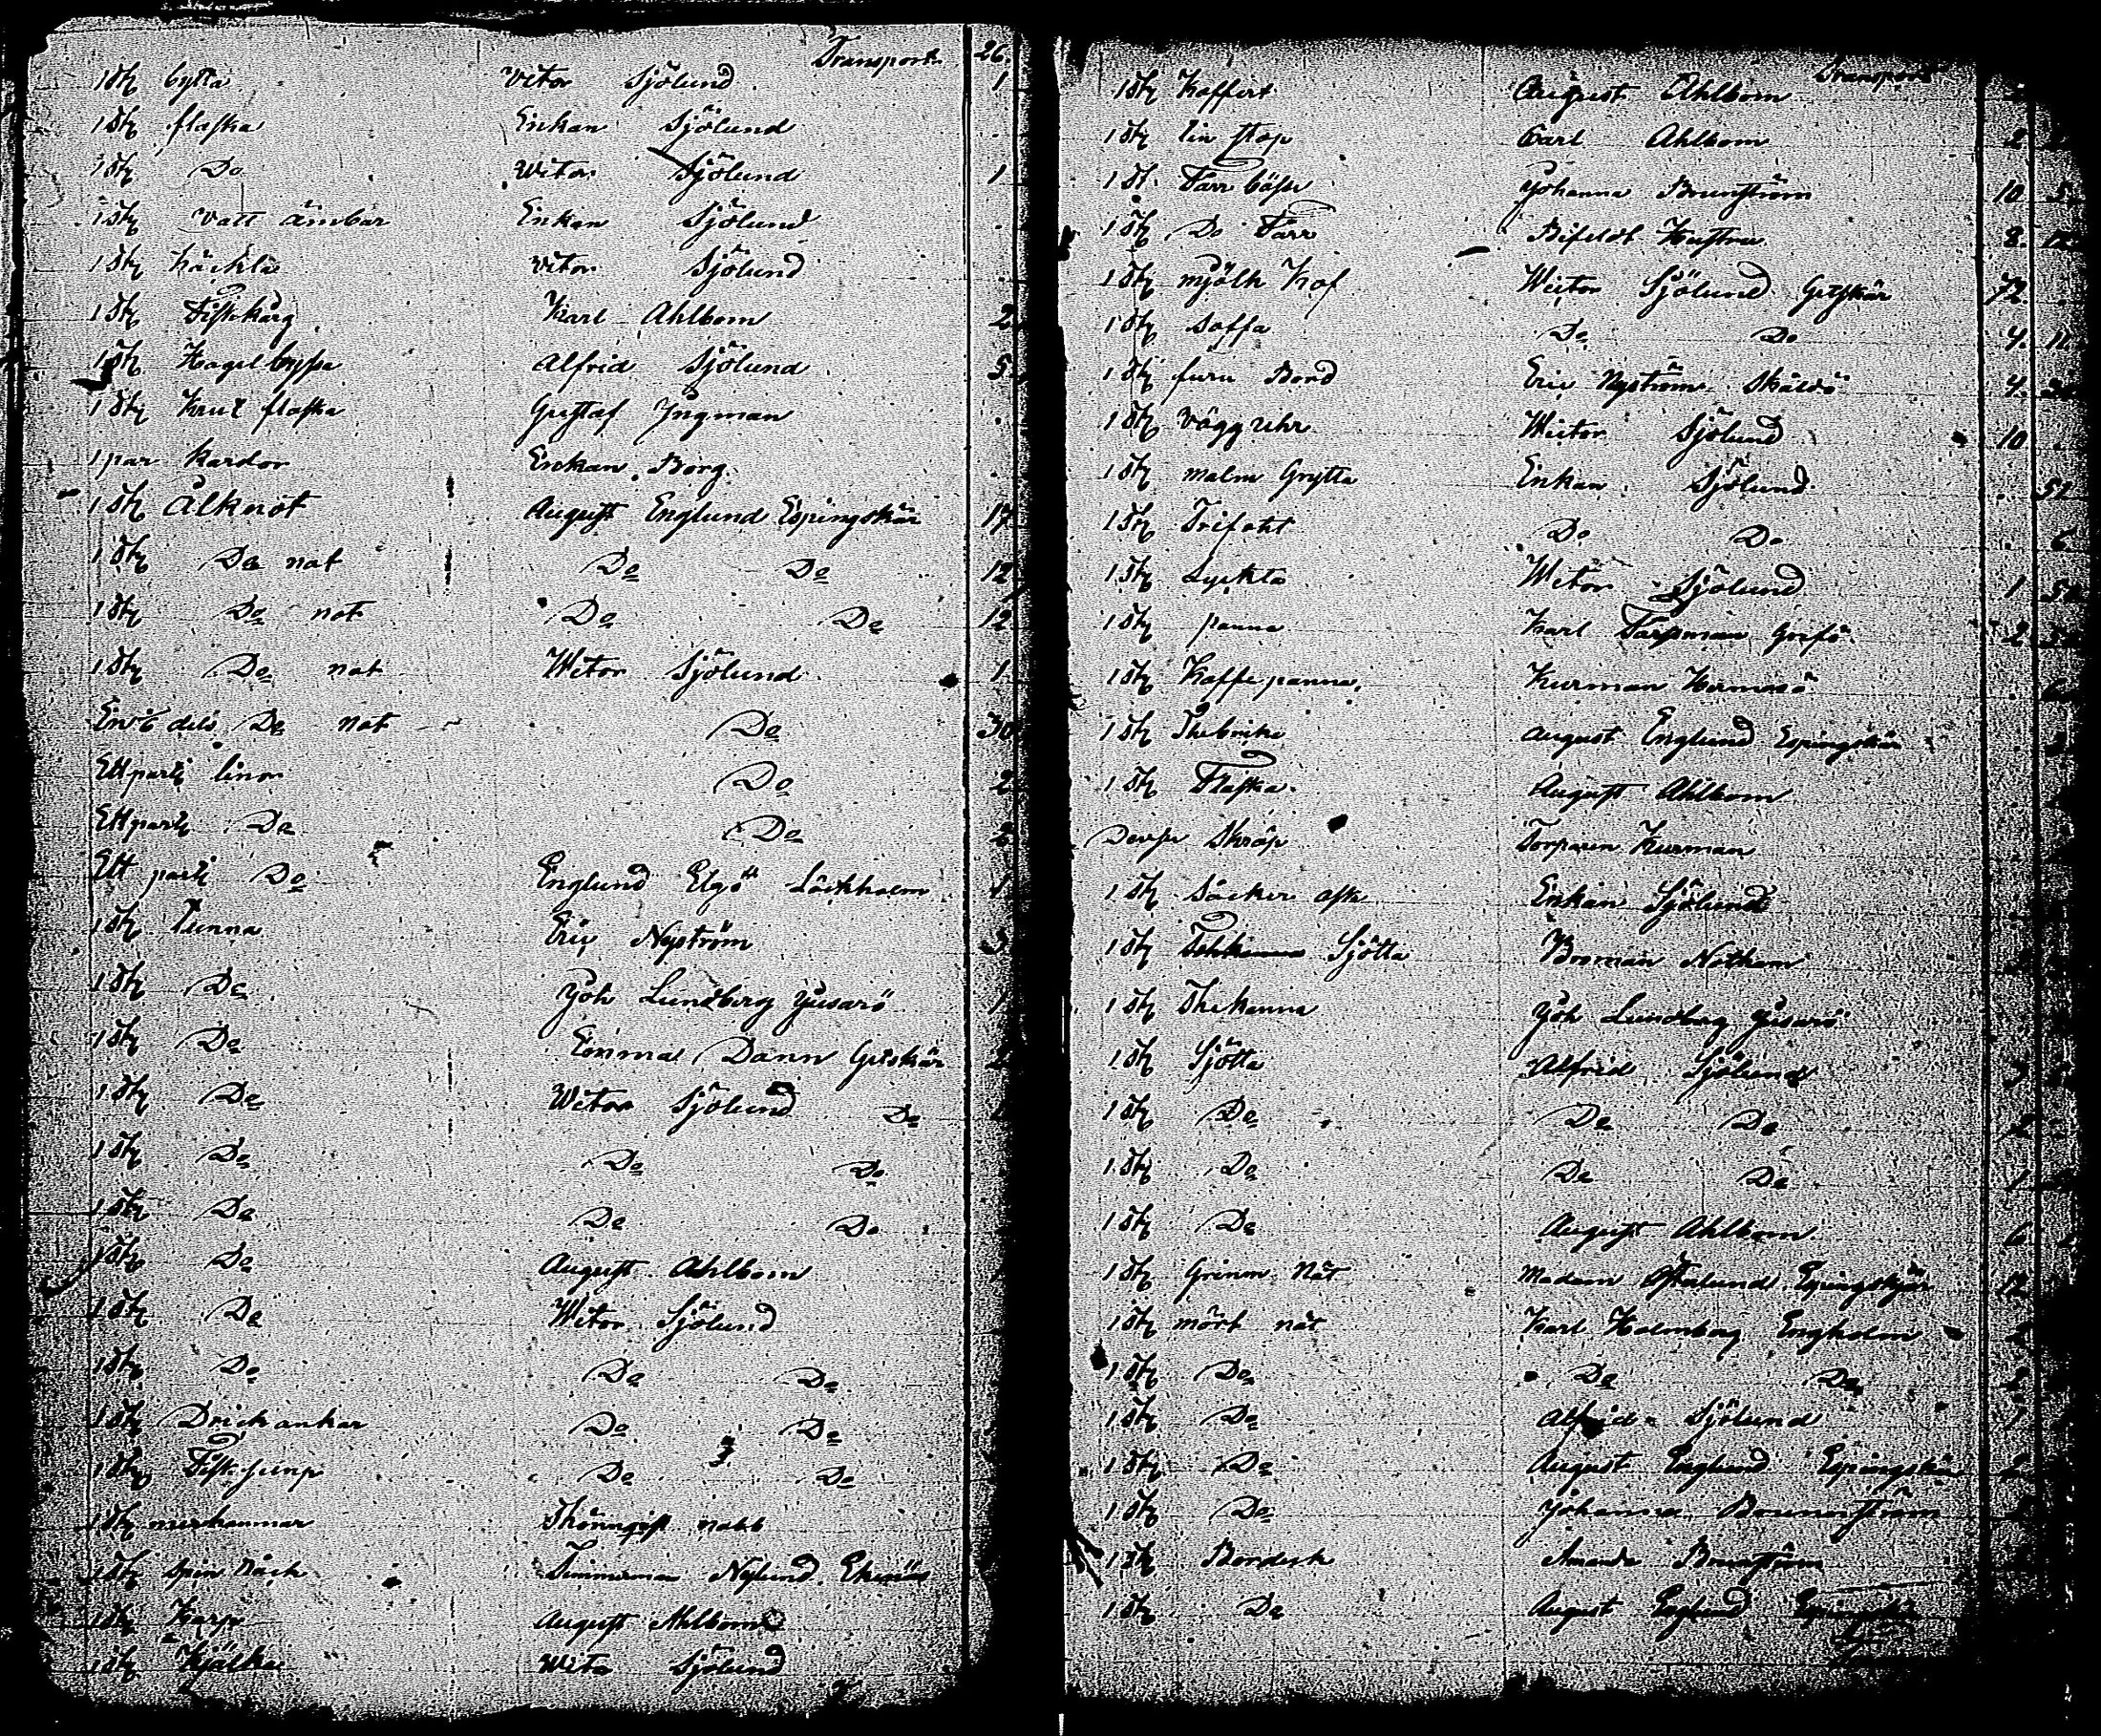 Transport 26.
1 Stk bytta Witor Sjölund 1
1 Stk flaska Enkan Sjölund
1 Stk Do Witor Sjölund 1
1 Stk vatt ämbar Enkan Sjölund
1 Stk häckla Vitor Sjölund
1 Stk Fiskkårg Karl Ahlbom 2
1 Stk Hagelbyssa Alfrid Sjölund 5
1 Stk Krut flaska Gustaf Yngman
1 par kardor Enckan Borg
1 Stk Ålknot August Englund Espingskär 17
1 Stk Do not Do Do 12
1 Stk Do not Do Do 12
1 Stk Do not Witor Sjölund 1
En 6 dels Do not Do 30
Ett parti linor Do 2
Ett parti Do Do 2
Ett parti Do Englund Elgö Löckholm 1
1 Stk Tunna Eric Nyström 3
1 Stk Do Joh Lundberg Jusarö 1
1 Stk Do Emma Dann Getskär 2
1 Stk Do Witor Sjölund Do
1 Stk Do Do Do
1 Stk Do Do Do
1 Stk Do August Ahlbom
1 Stk Do Witor Sjölund
1 Stk Do Do Do
1 Stk Drickankar Do Do
1 Stk Fisksump Do Do
1 Stk murhammar Thörnqist
1 Stk spin Råck Timmerman Nylund Ekenäs
1 Stk Harpa August Ahlbom
1 Stk Kjälka Witor Sjölund
Transport
1 Stk Koffert August Ahlbom
1 Stk lin stop Carl Ahlbom 2
1 St. Farr bässe Johanna Brunström 10 5
1 Stk Do Farr Hustru 8
1 Stk mjölk Kof Wictor Sjölund Getskär 72
1 Stk Soffa Do Do 4. 11
1 Stk furu Bord Eric Nyström Skåldö 4.
1 Stk vägg uhr Wictor Sjölund 10
1 Stk malm Grytta Enkan Sjölund 51
1 Stk Trifoht Do Do 6
1 Stk Lyckta Witor Sjölund 1
1 Stk panna Karl 2
1 Stk Kaffepanna Kurman Hermasö
1 Stk Thebrika August Englund Espingskär
1 Stk Flaska August Ahlbom
Skräp Torparen Kurman
1 Stk Såcker ask Enkan Sjölund
1 Stk Sjötta Broman
1 Stk Thekanna Joh Lundberg Jusarö
1 Stk Sjötta Alfrid Sjölund 3
1 Stk Do Do Do
1 Stk Do Do Do 1
1 Stk Do August Ahlbom 6
1 Stk Grimm Nät Madam Espingskär 12
1 Stk mört nät Karl Holmberg Engholm 2
1 Stk Do Do Do 2
1 Stk Do Alfrid Sjölund 1
1 Stk Do August Englund Espingskär
1 Stk Do Johanna Brunnström
1 Stk Bordisk Amanda Brunström
1 Stk Do August Englund